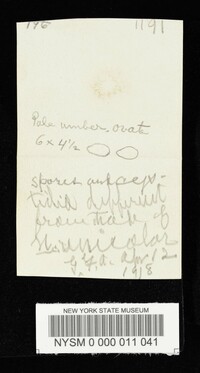 1191
Pale umber, ovate
6 x 4½
spores
different
from those of
G.F.A. Apr 12
1918
NEW YORK STATE MUSEUM
NYSM 0 000 011 041